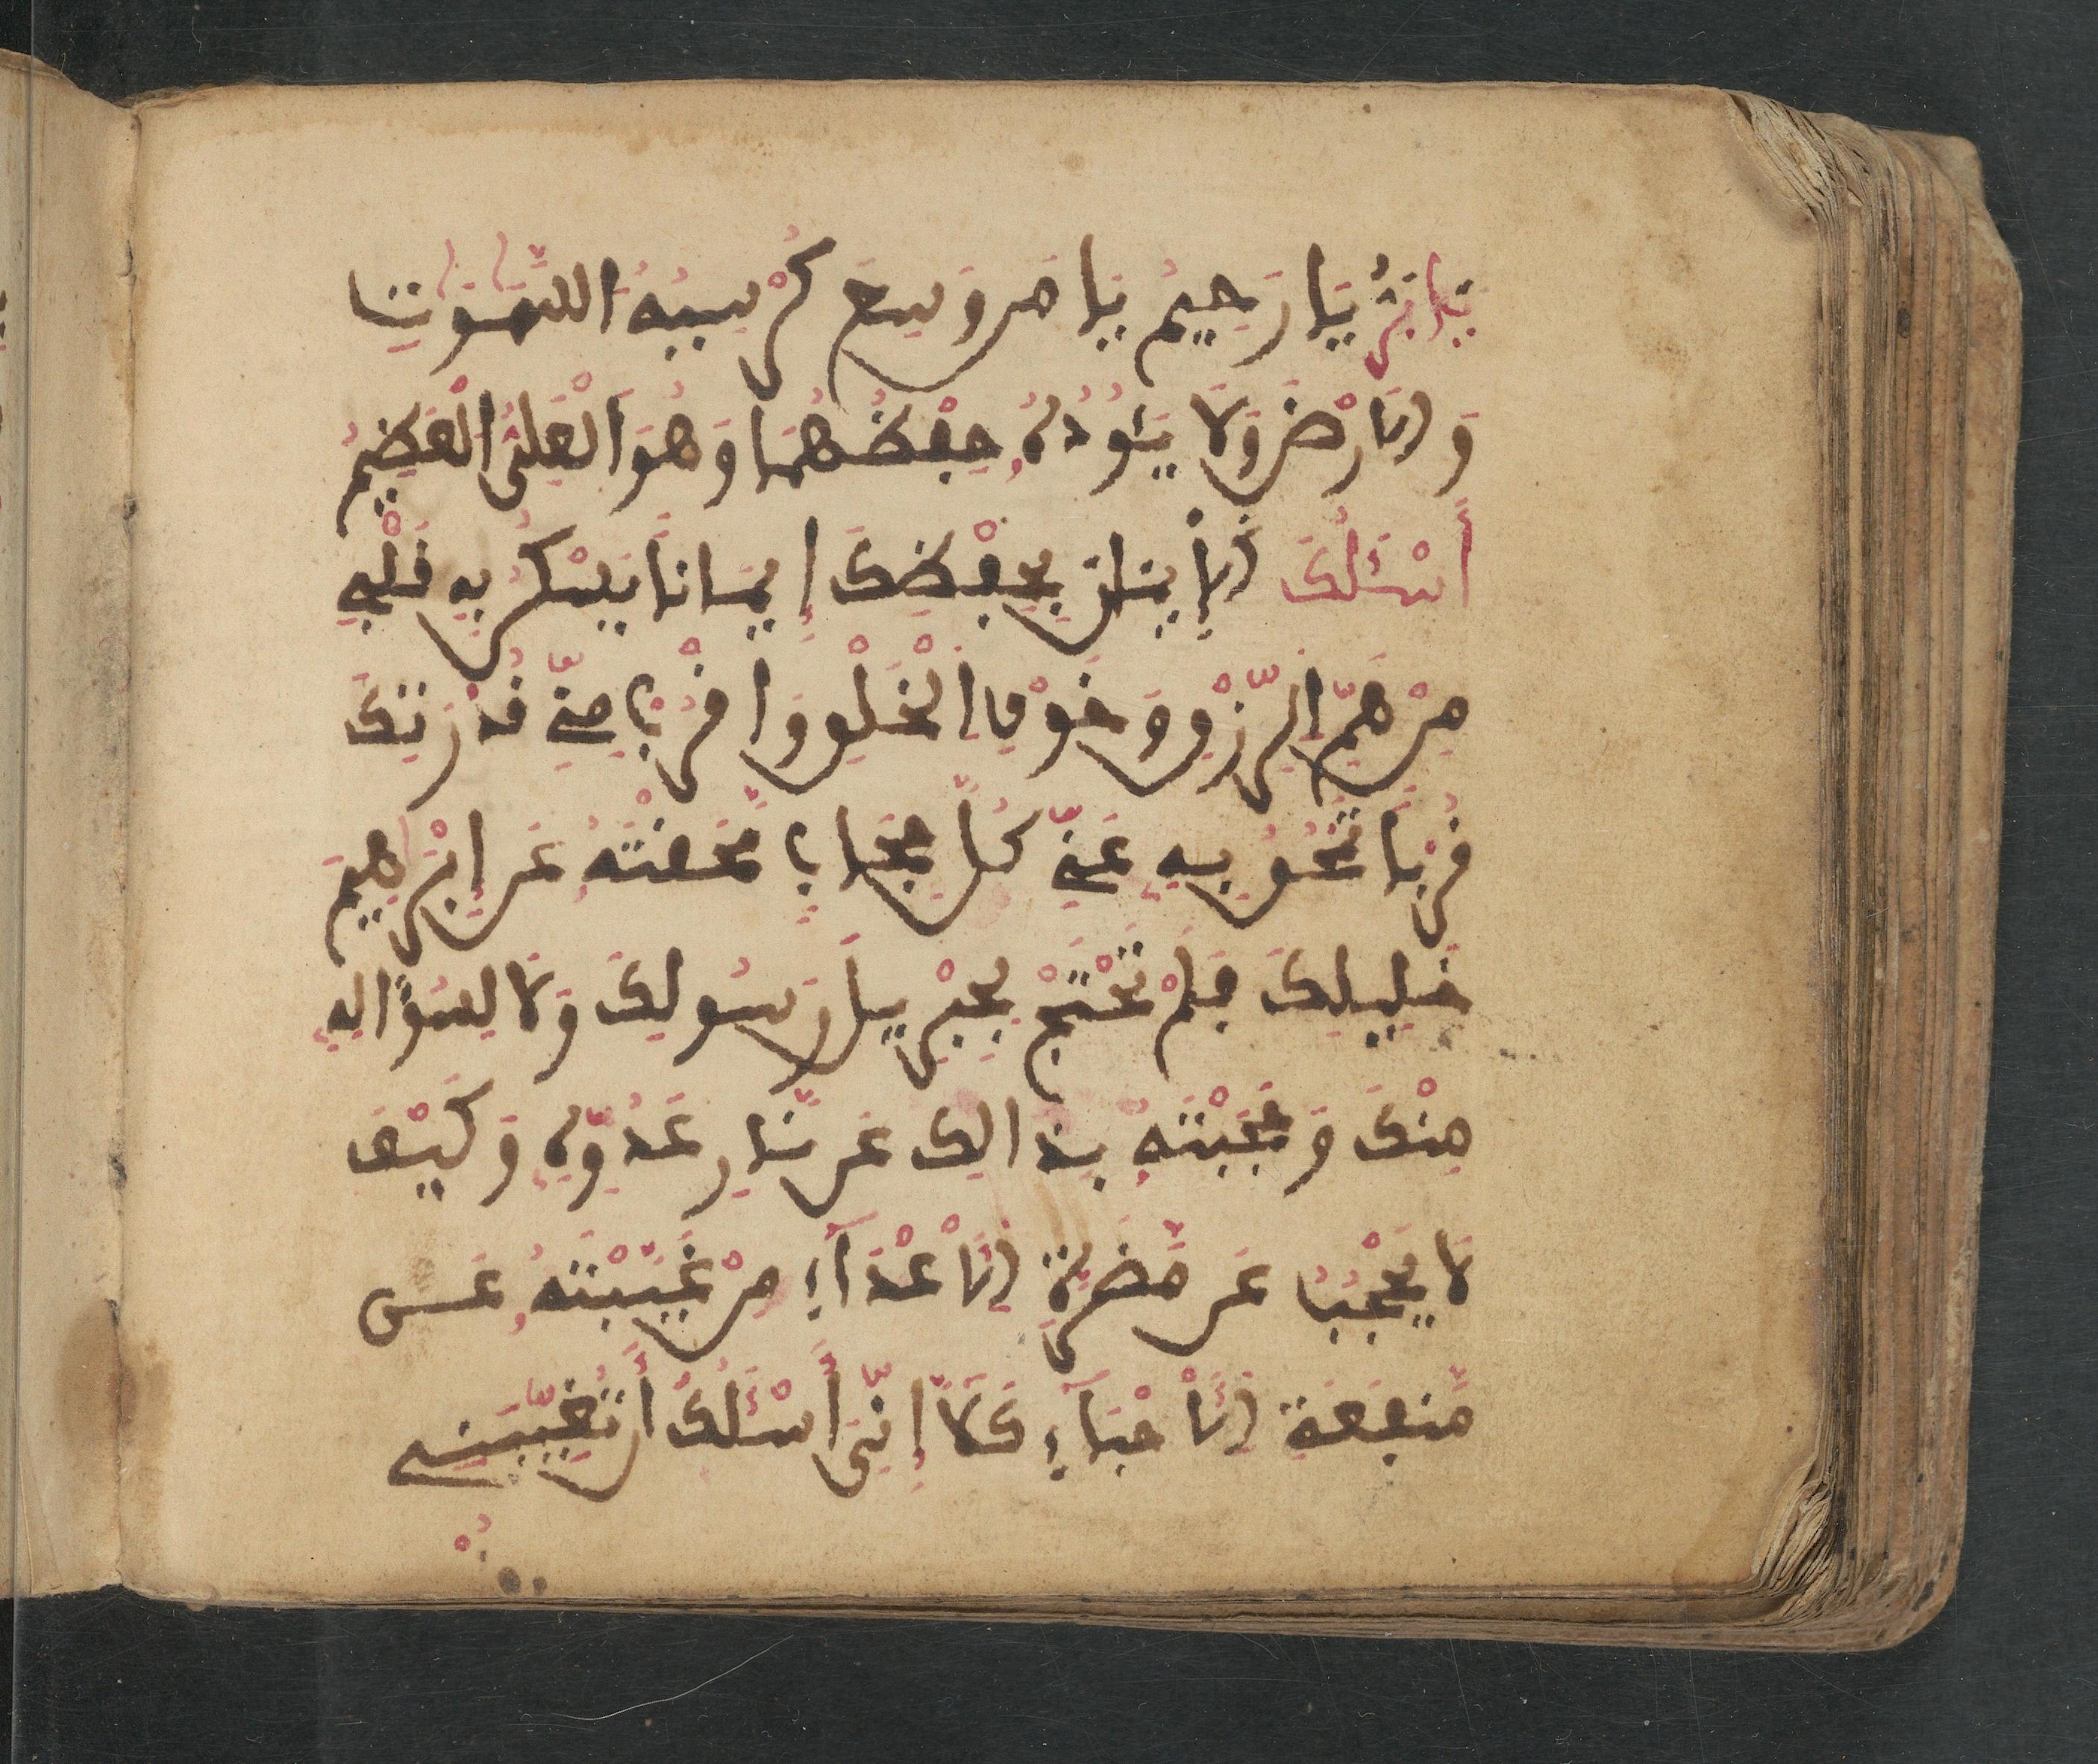 يَا بَرُّ يَا رَحِيمُ يَا مَن وَسِعَ كُرْسِيُّهُ السَّمَوَاتِ
وَالْأَرْضَ وَلَا يَئُودُهُ حِفْظُهُمَا وَهُوَ الْعَلِيُّ الْعَظِيمُ
أَسْئَلُكَ الْإِيمَانَ بِحِفْظِكَ إِيمَانًا يَسْكُنُ بِهِ قَلْبِي
مِنْ هَمِّ الرِّزْقِ وَخَوْفِ الْخَلْقِ وَاقْرُبْ مِنِّي قُدْرَتِكَ
قُرْبًا تَمْحُو بِهِ عَنِّي كُلَّ حِجَابٍ مَحَقْتَهُ عَن إِبْرَاهِيمَ
خَلِيلِكَ فَلَمْ يَحْتَجْ بِجِبْرِيلَ رَسُولِكَ وَلَا لِسُؤَالِهِ
مِنْكَ وَحَجَبْتَهُ بِذَالِكَ عَن نَّارِ عَدُوِّهِ وَكَيْفَ
لَا يُحْجَبُ عَن مَّضَرَّةِ الْأَعْدَآءِ مَنْ غَيَّبْتَهُ عَن
مَّنفَعَةِ الْأَحِبَّآءِ كَلَّا إِنِّي أَسْئَلُكَ أَن تُغَيِّبَنِي